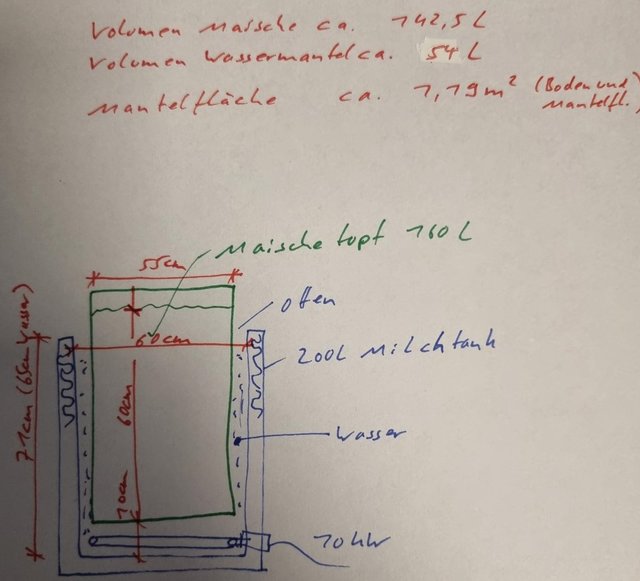 Volumen Maische ca. 142,5L
Volumen Wassermantel ca. 54 L
Mantelfläche ca. 1,19m² (Boden und
Mantelfl.)
Maischetopf 160 L
55cm
offen
60cm
200L Milchtank
71cm (65cm Wasser)
60cm
Wasser
10cm
10 kW